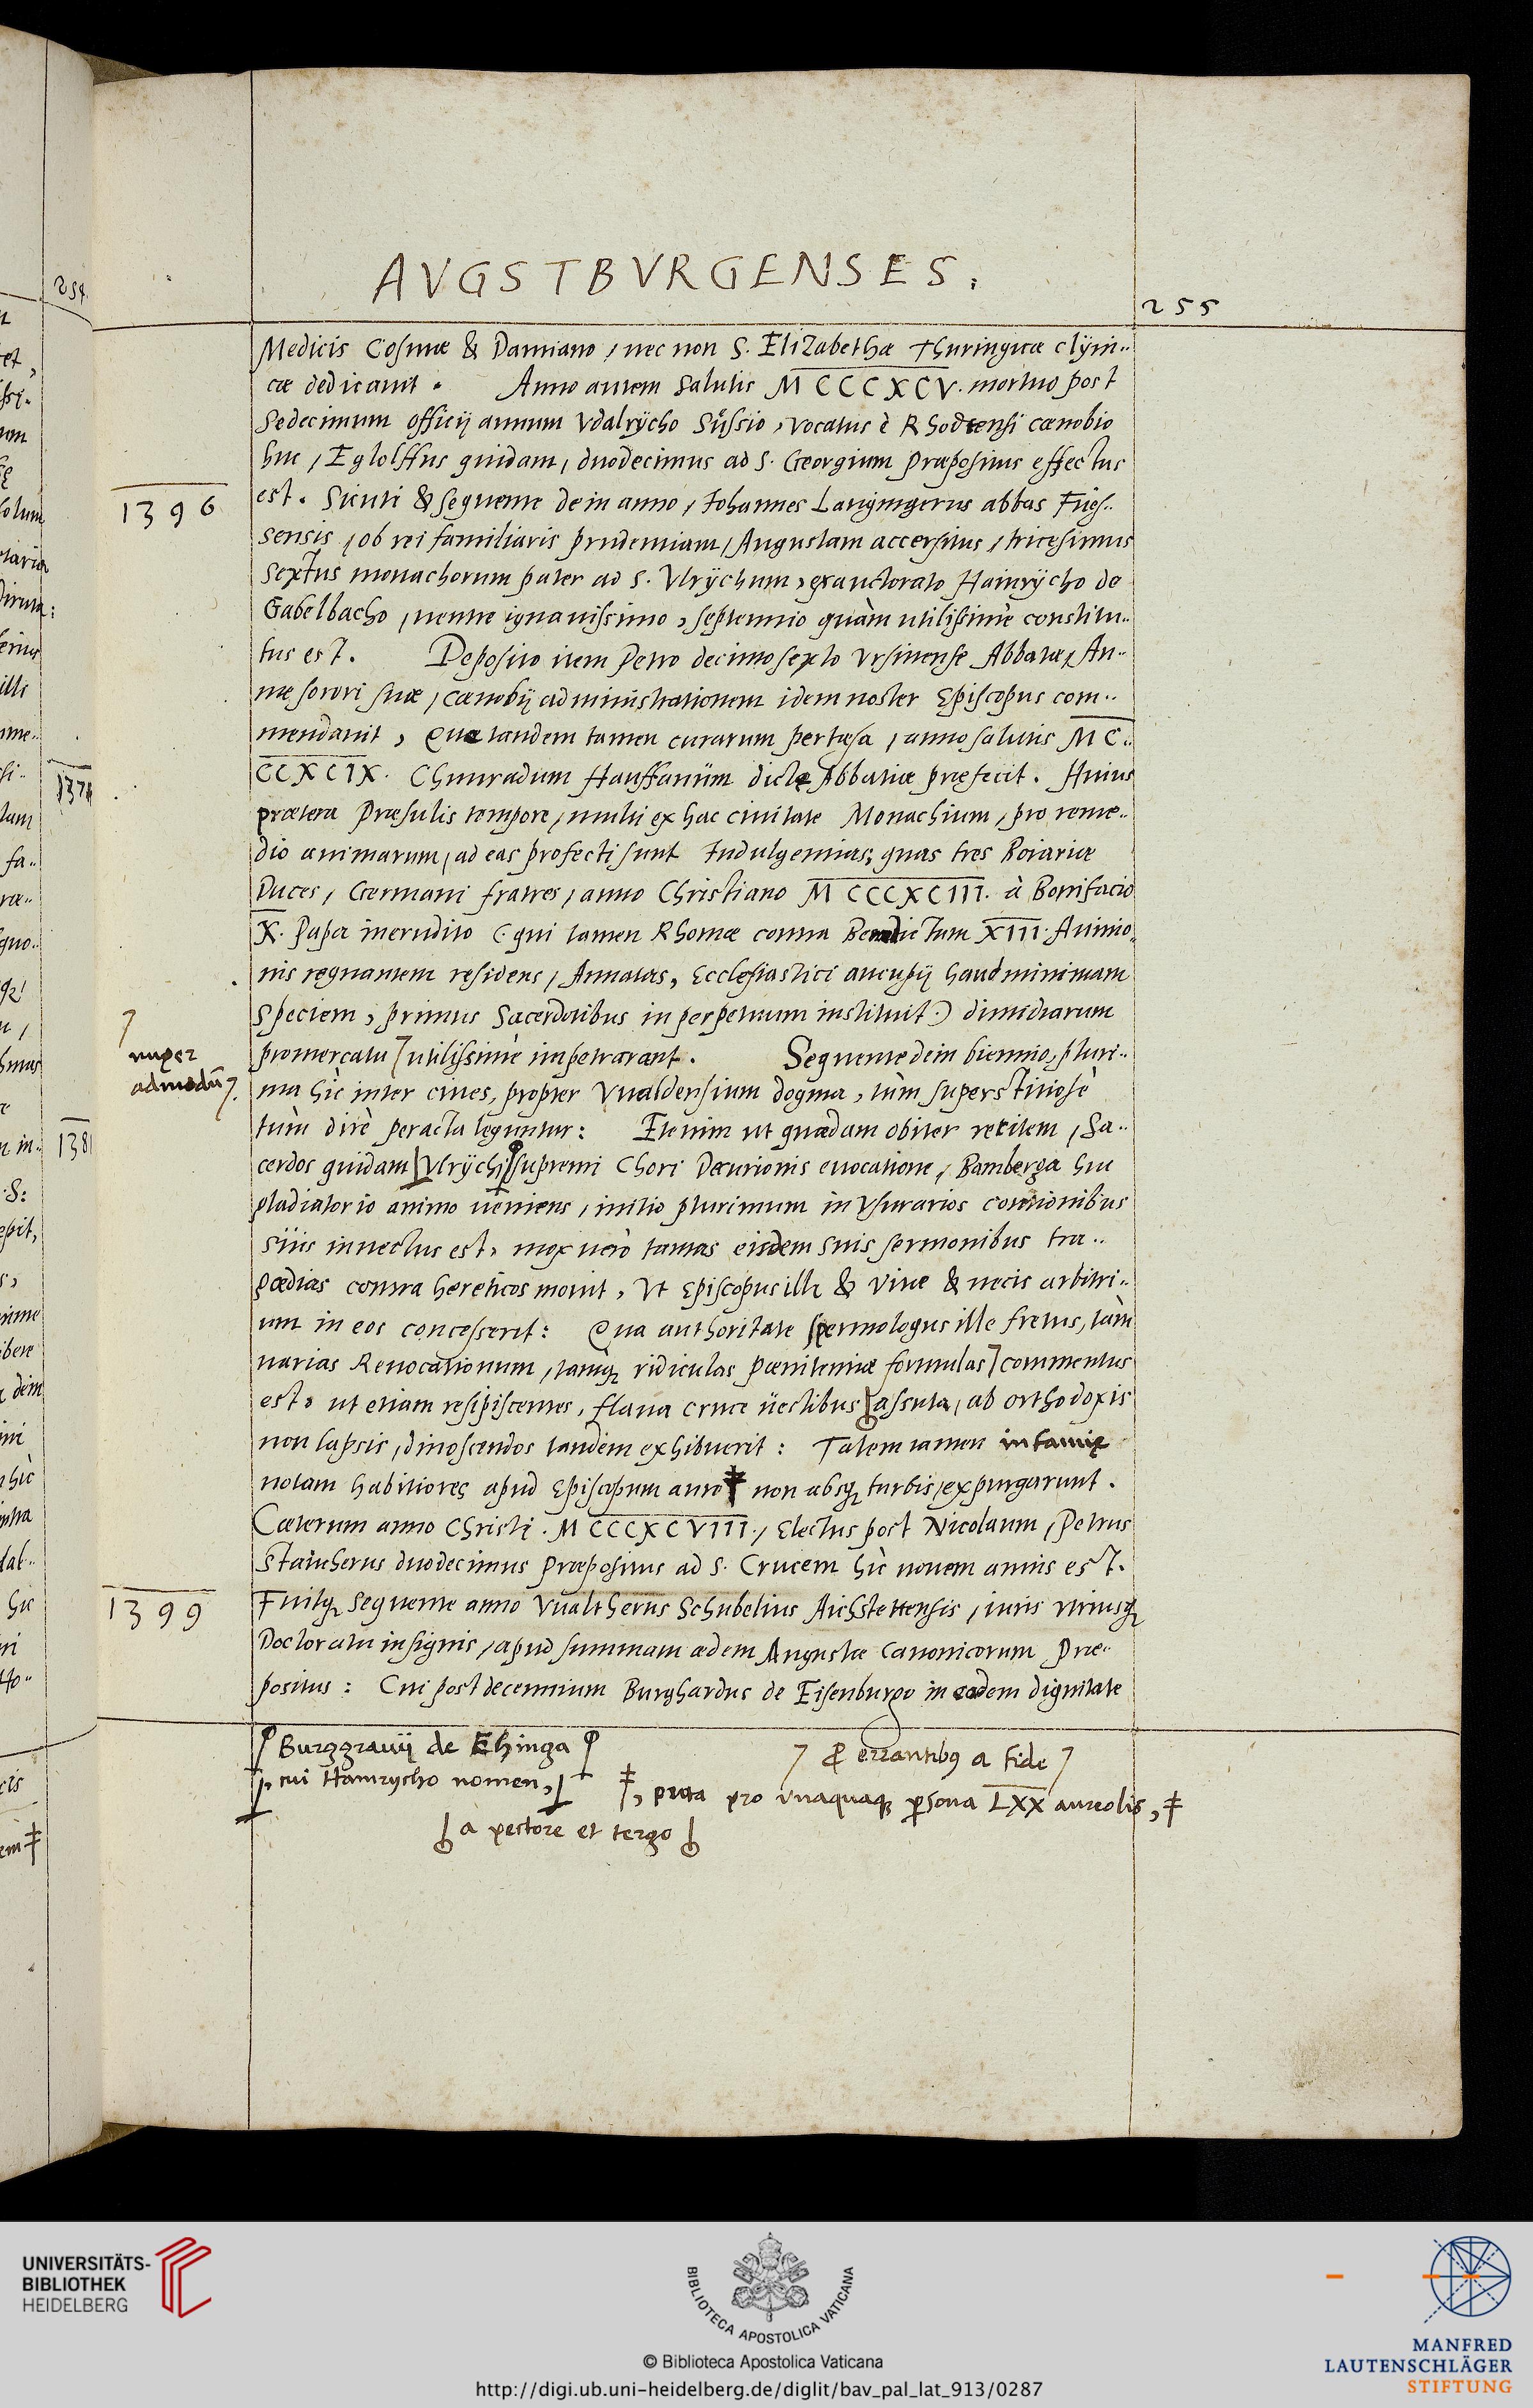 AVGSTBVRGENSES.
255
Medicis Cosmæ & Damiano, nec non S. Elizabethæ Thuringicæ clÿni..
cæ dedicauit. Anno autem Salutis MCCCXCV. mortuo post
Sedecimum officij annum Vdalrÿcho Süssio, vocatus è Rhodtensi cœnobio
huc, Eglolffus quidam, duodecimus ad S. Georgium Præpositus effectus
1396
est. Sicuti & sequente dein anno, Iohannes Langingerus abbas Fües..
sensis, ob rei familiaris prudentiam, Augustam accersitus, tricesimus
sextus monachorum pater ad S. Vlrÿchum, exauctorato Hainrÿcho de
Gabelbacho, uentre ignauissimo, septennio quàm utilissimè constitu..
tus est. Deposito item Petro decimosexto Vrsinense Abbate, An..
næ sorori suæ, cœnobij administrationem idem noster Episcopus com..
mendauit, Quæ tandem tamen curarum pertæsa, anno salutis MC..
CCXCIX. Chunradum Hauffanüm dictę Abbatiæ præfecit. Huius
prætera Præsulis tempore, multi ex hac ciuitate Monachium, pro reme..
dio animarum, ad eas profecti sunt Indulgentias, quas tres Boiariæ
Duces, Germani fratres, anno Christiano MCCCXCIII. à Bonifacio
X. Papa inerudito (qui tamen Rhomæ contra Benedictum XIII. Auinio..
nis regnantem residens, Annatas, Ecclesiastici aucupij haud minimam
Speciem, primus Sacerdotibus in perpetuum instituit.) dimidiarum
nuper
admodū
promercatu utilissimè impetrarant. Sequente dein biennio, pluri..
ma hìc inter ciues, propter Vualdensium dogma, tùm superstitiosè
tùm dirè peracta leguntur: Etenim ut quædam obiter recitem, Sa..
cerdos quidam Vlrÿchi supremi Chori Decurionis euocatione, Bamberga huc
gladiatorio animo ueniens, initio plurimum in Vsurarios contionibus
suis inuectus est, mox uerò tantas eisdem suis sermonibus tra..
gœdias contra hereticos mouit, Vt Episcopus illi & vitæ & necis arbitri..
um in eos concesserit: Qua authoritate spermologus ille fretus, tàm
uarias Reuocationum, tamq; ridiculas pœnitentiæ formulas commentus
est, ut etiam resipiscentes, flaua cruce uestibus assuta, ab orthodoxis
non lapsis, dinoscendos tandem exhibuerit: Talem tamen infamię
notam habitiores apud Episcopum auro non absq; turbis, expurgarunt.
Cæterum anno Christi. MCCCXCVIII., Electus post Nicolaum, Petrus
Staincherus duodecimus Præpositus ad S. Crucem hìc nouem annis est.
1399
Fuitq; sequente anno Vualtherus Schubelius Aichstettensis, iuris utriusq;
Doctoratu insignis, apud summam ædem Augustæ Canonicorum Præ..
positus: Cui post decennium Burghardus de Eisenburgo in eadem dignitate
Burggrauij de Ehinga
pro errantibus a fide
cui Hainrycho nomen,
, pacta pro vnaquaq; persona LXX aureolis,
a pectore et tergo
254
1374
1381
UNIVERSITÄTS-
BIBLIOTHEK
HEIDELBERG
BIBLIOTECA APOSTOLICA VATICANA
© Biblioteca Apostolica Vaticana
http://digi.ub.uni-heidelberg.de/diglit/bav_pal_lat_913/0287
MANFRED
LAUTENSCHLÄGER
STIFTUNG